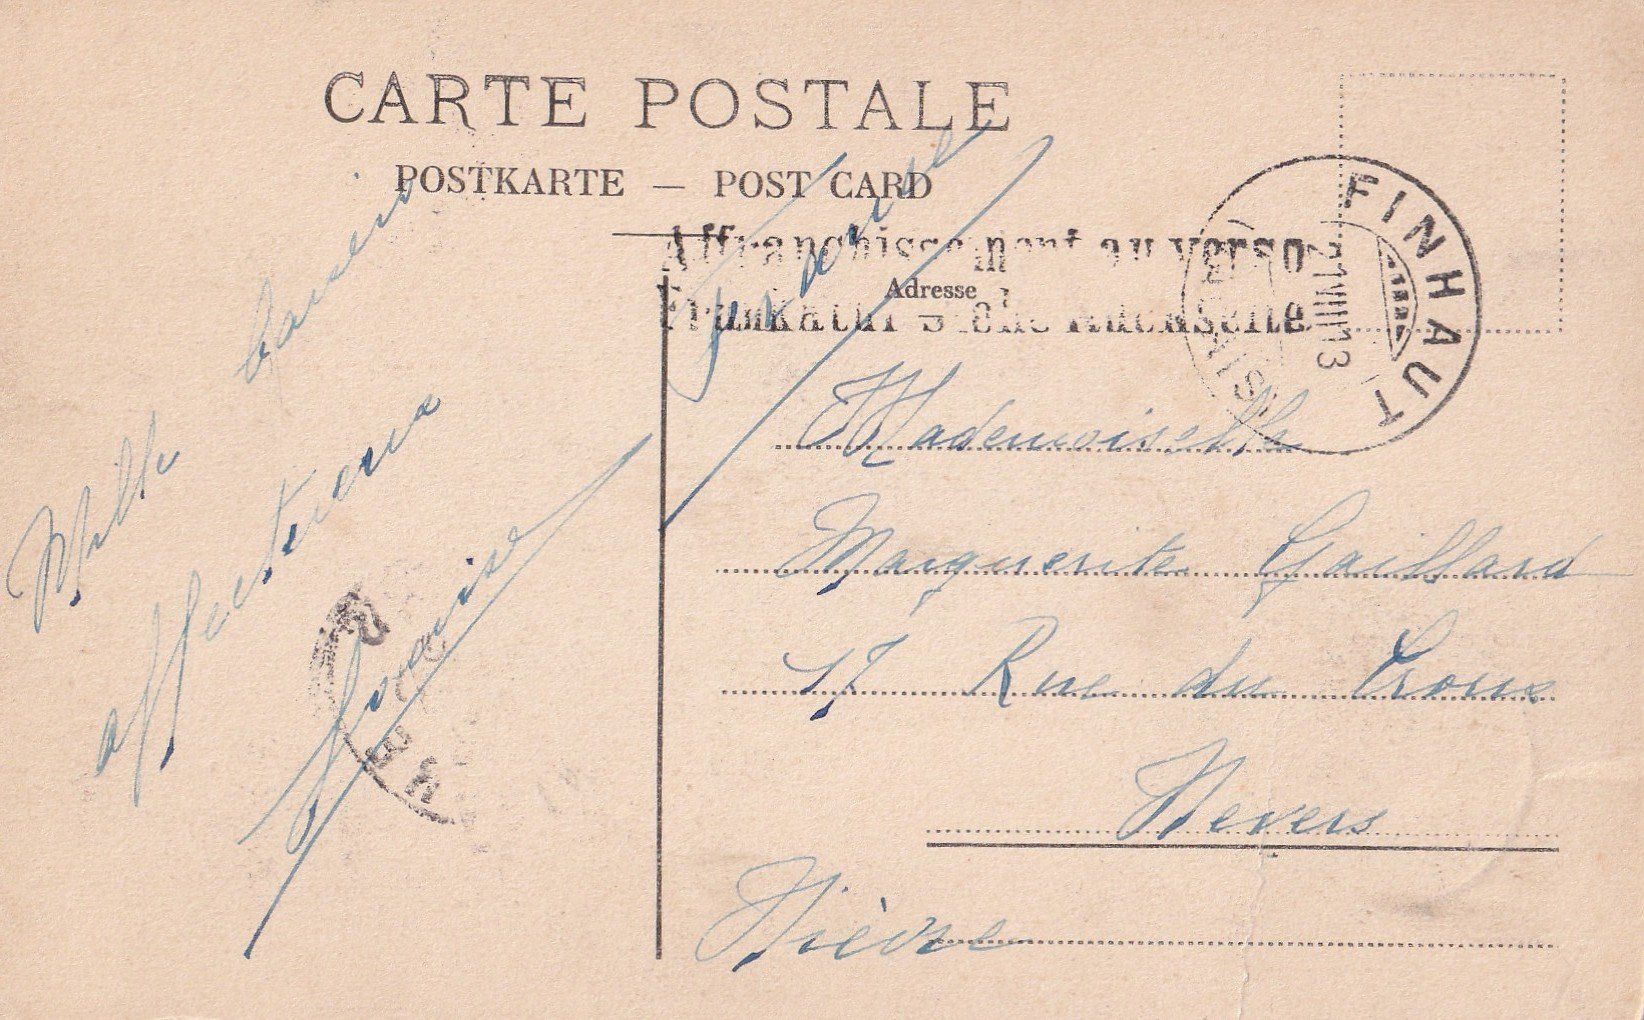 CARTE POSTALE
POSTKARTE — POST CARD
Affranchissement au verso
Adresse
Frankatur siehe Rückseite
FINHAUT
21 VIII 13
Mille baisers
affectueux
Louise
Mademoiselle
Marguerite Gaillard
17 Rue du Croux
Nevers
Nièvre